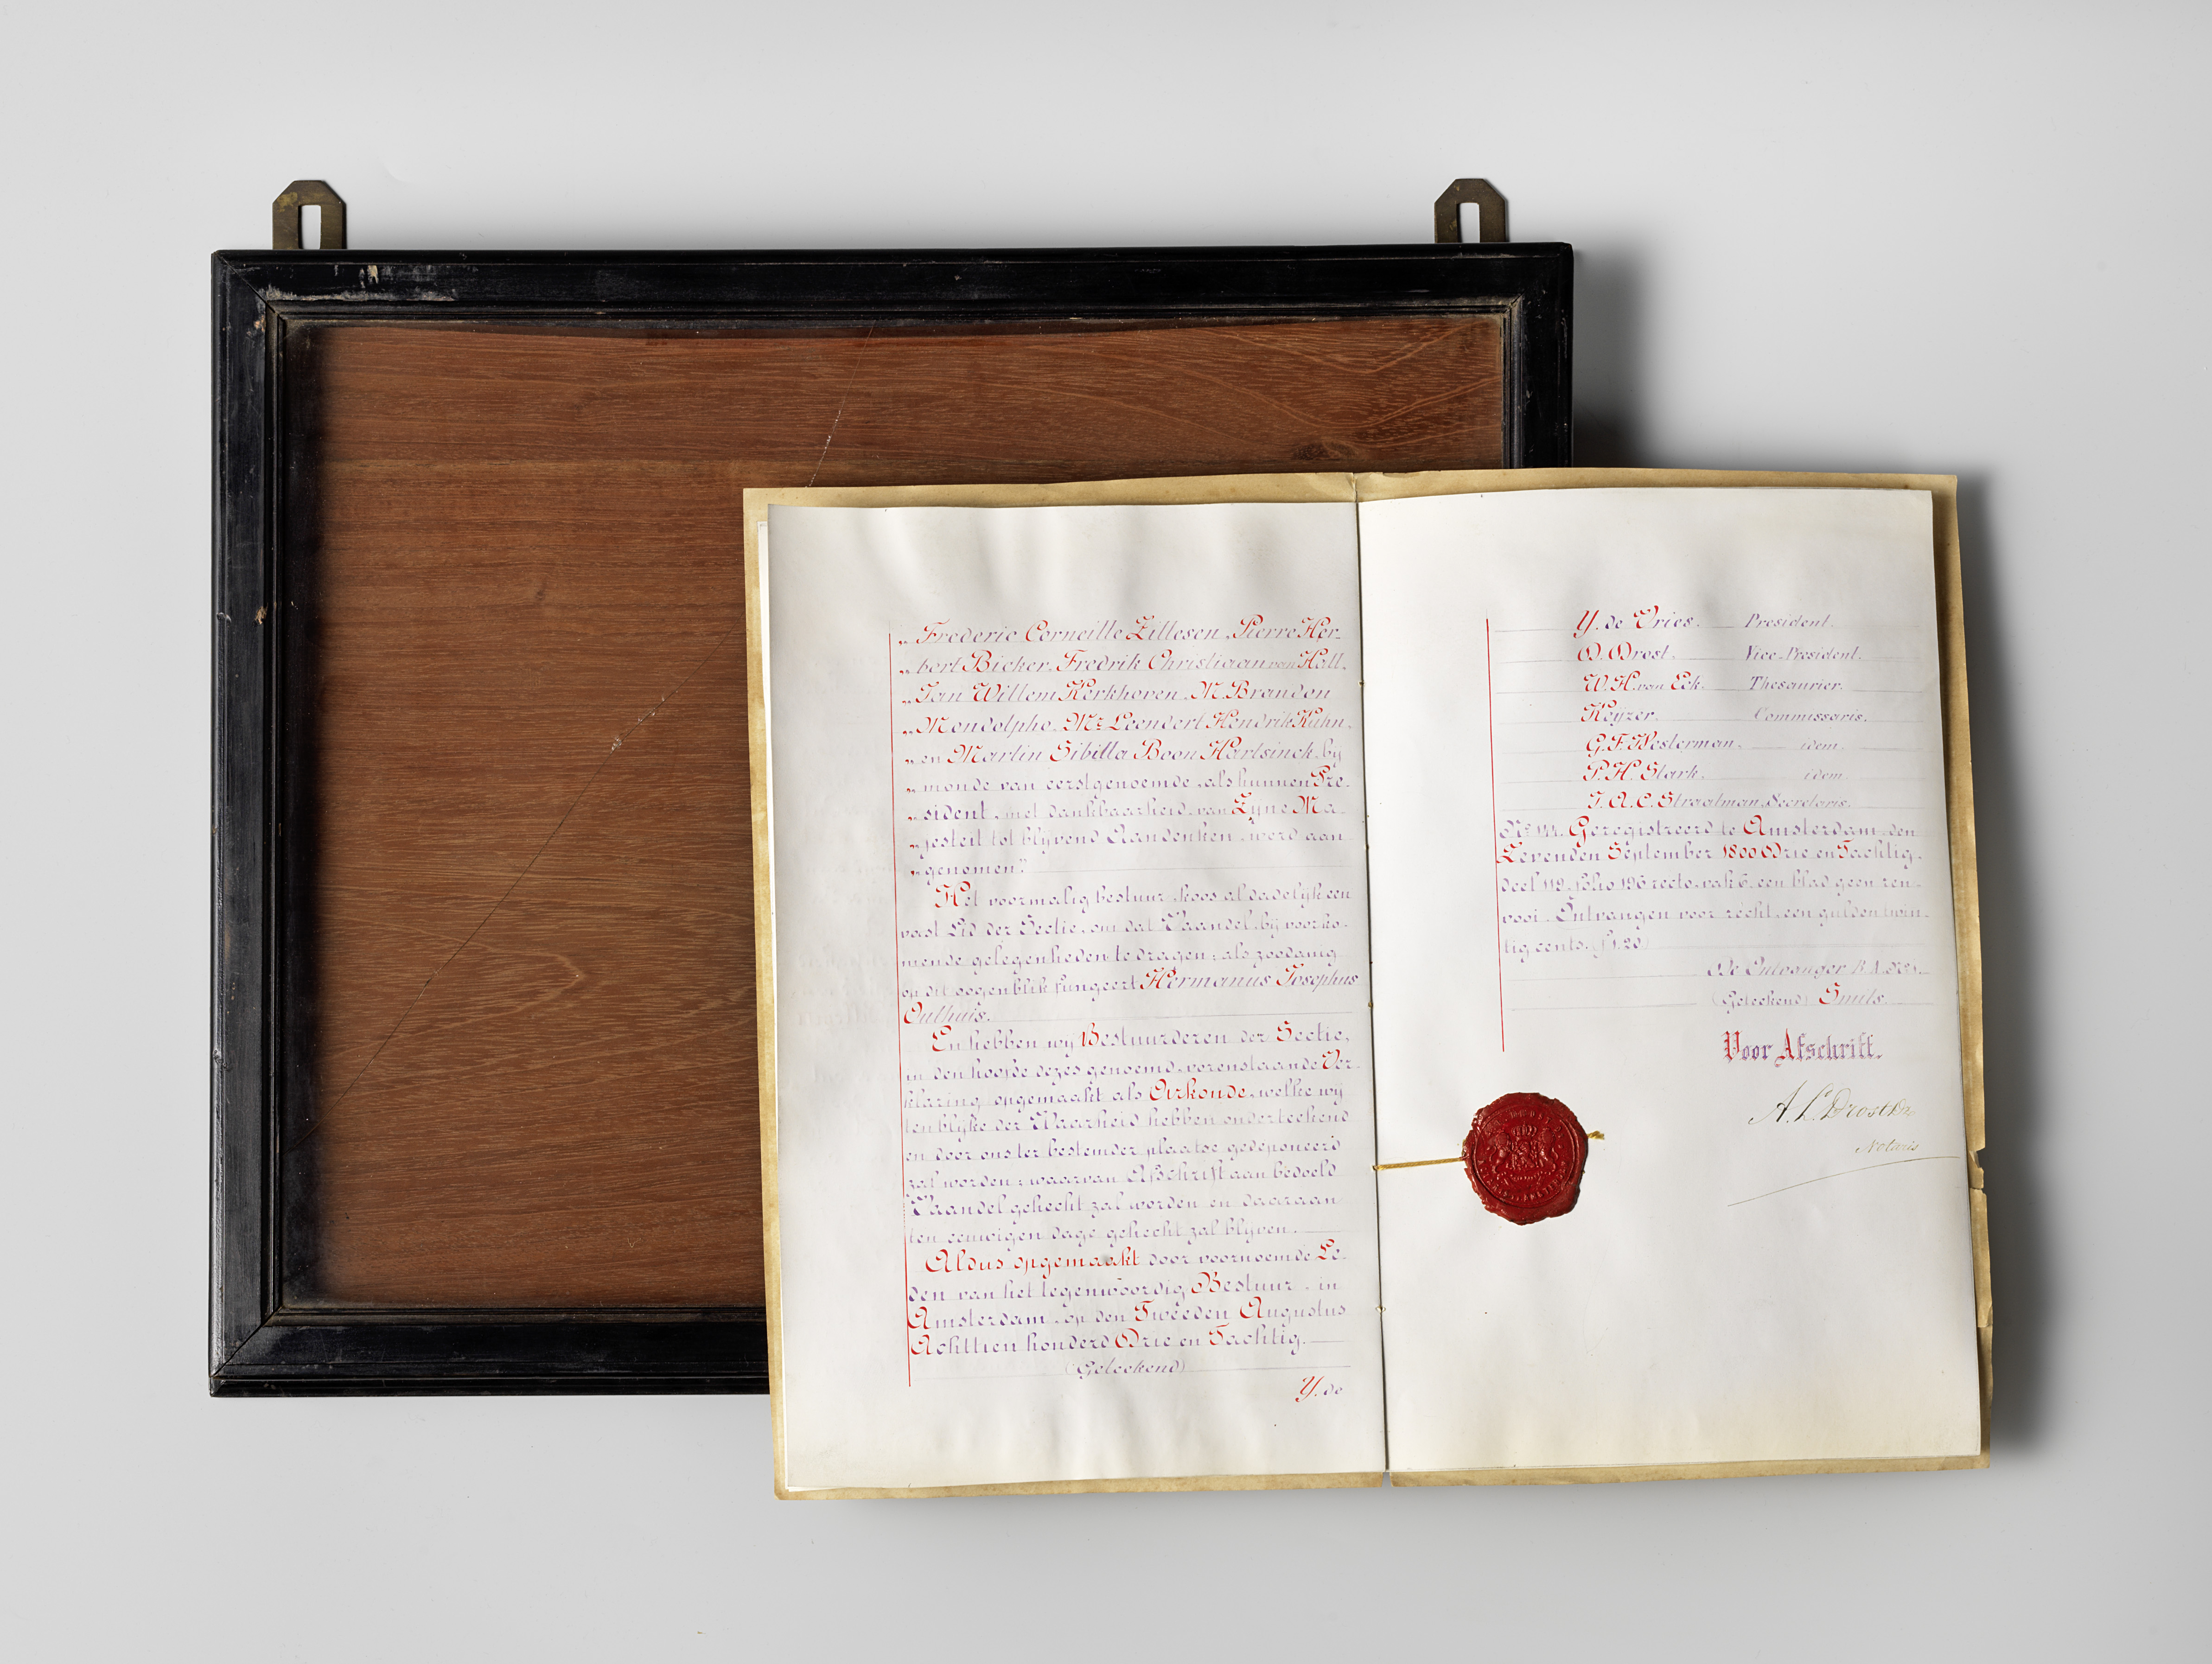 „ Frederic Corneille Zillesen, Pierre Her-
„ bert Bicker, Fredrik Christiaan van Hall,
„ Jan Willem Kerkhoven, M. Brandon
„ Mendolphe, Mr. Leendert Hendrik Kuhn,
„ en Martin Sibilla Boon Hartsinck, by
„ monde van eerstgenoemde, als hunnen Pre-
„ sident, met dankbaarheid, van Zyne Ma-
„ jesteit tot blijvend Aandenken, werd aan
„ genomen".
Het voormalig bestuur, koos al dadelijk een
vast Lid der Sectie, om dat Vaandel, bij voorko-
mende gelegenheden te dragen; als zoodanig
op dit oogenblik fungeert Hermanus Josephus
Outhuis.
En hebben wij Bestuurderen der Sectie,
in den hoofde dezes genoemd, vorenstaande Ver-
klaring, opgemaakt als Oirkonde, welke wij
ten blijke der Waarheid hebben onderteekend
en door ons ter bestemder plaatse gedeponeerd
zal worden; waarvan Afschrift aan bedoeld
Vaandel gehecht zal worden en daaraan
ten eeuwigen dage gehecht zal blijven.
Aldus opgemaakt door voornoemde Le-
den van het tegenwoordig Bestuur, in
Amsterdam, op den Tweeden Augustus
Achttien honderd Drie en Tachtig.
(Geteekend)
Y. de
Y. de Vries. President.
D. Drost. Vice-President.
W. H. van Eck. Thesaurier.
Keijzer. Commissaris.
G. F. Westerman. idem
P. H. Stark. idem
J. A. C. Straatman, Secretaris.
Geregistreerd te Amsterdam den
Zevenden September 1800 Drie en Tachtig,
deel 119, folio 196 recto, vak 6, een blad geen ren-
vooi. Ontvangen voor recht, een gulden twin-
tig cents. (f 1.20)
De Ontvanger
(Geteekend) Smits.
Voor Afschrift.
A. L. Drost
Notaris